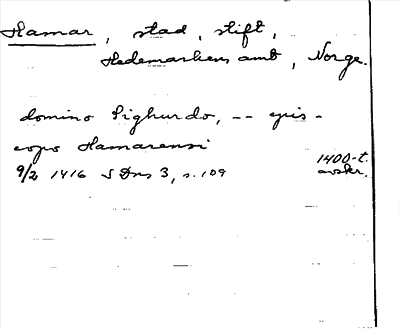 Hamar, stad, stift,
Hedemarkens amt, Norge.
domino Sighurdo, -- epis-
copo Hamarensi
1400-t.
9/2 1416 SDns 3, s. 109 avskr.